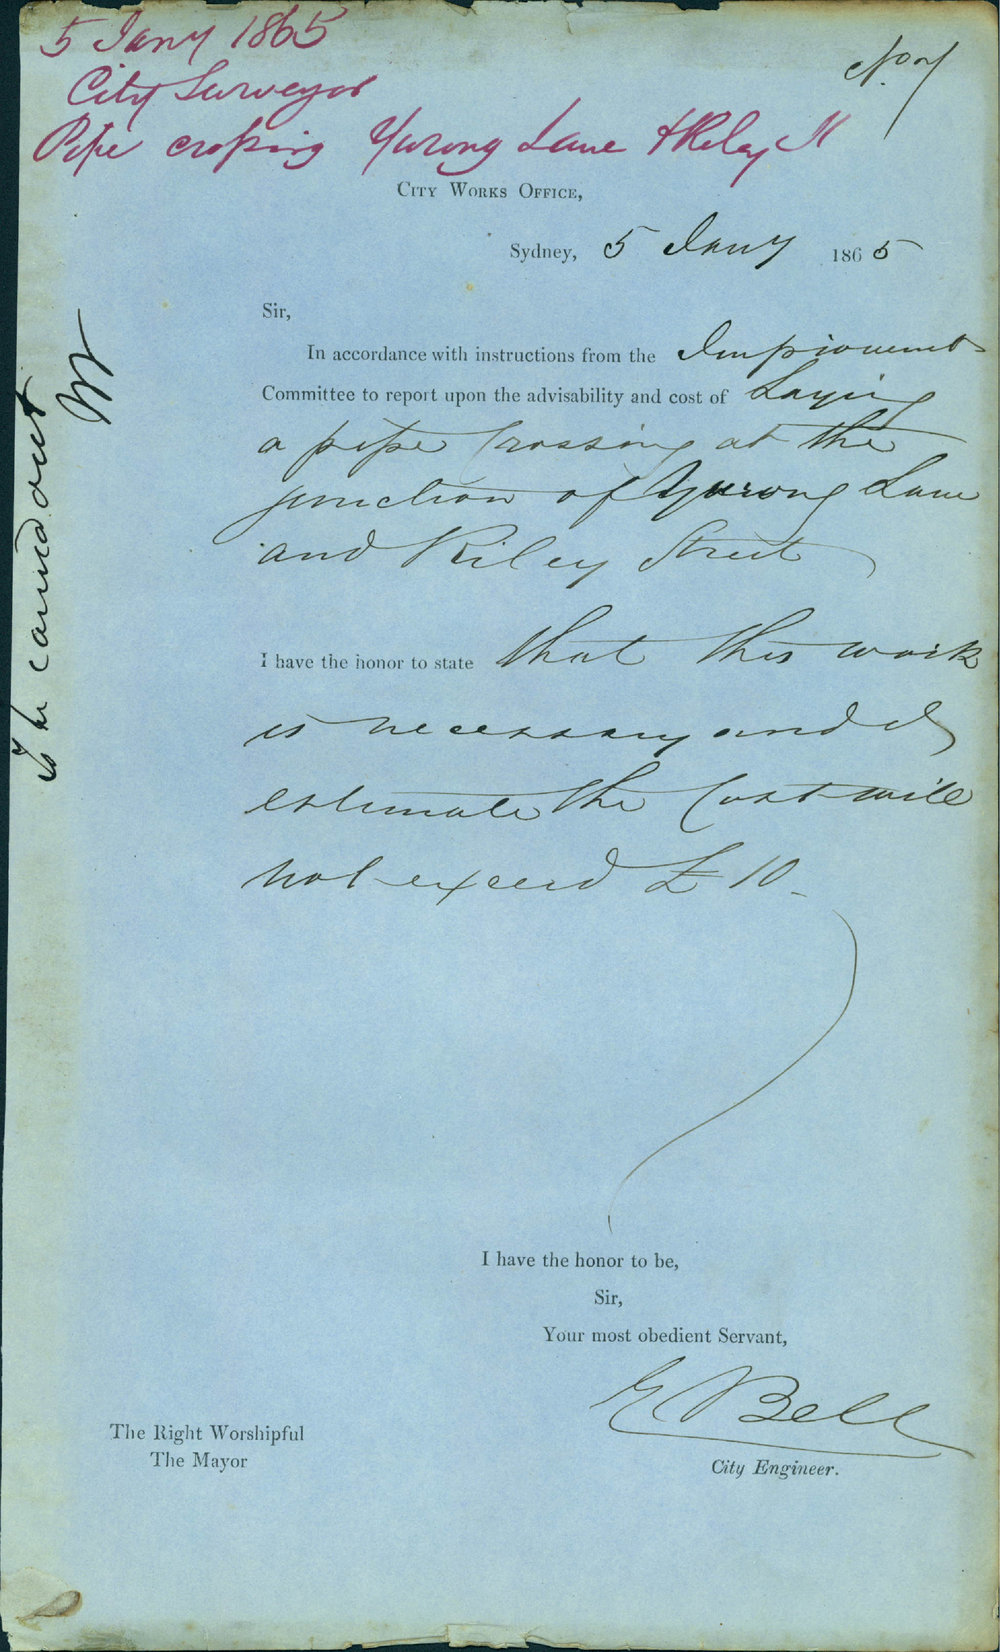 5 Jany 1865
City Surveyor
Pipe crossing Yurong Lane & Riley St
No 7
CITY WORKS OFFICE,
Sydney, 5 Jany 1865
Sir,
In accordance with instructions from the Improvement
Committee to report upon the advisability and cost of Laying
a pipe Crossing at the
junction of Yurong Lane
and Riley Street
I have the honor to state that this work
is necessary and I
estimate the Cost will
not exceed £10-
I have the honor to be,
Sir,
Your most obedient Servant,
E Bell
City Engineer.
The Right Worshipful
The Mayor
To be carried out